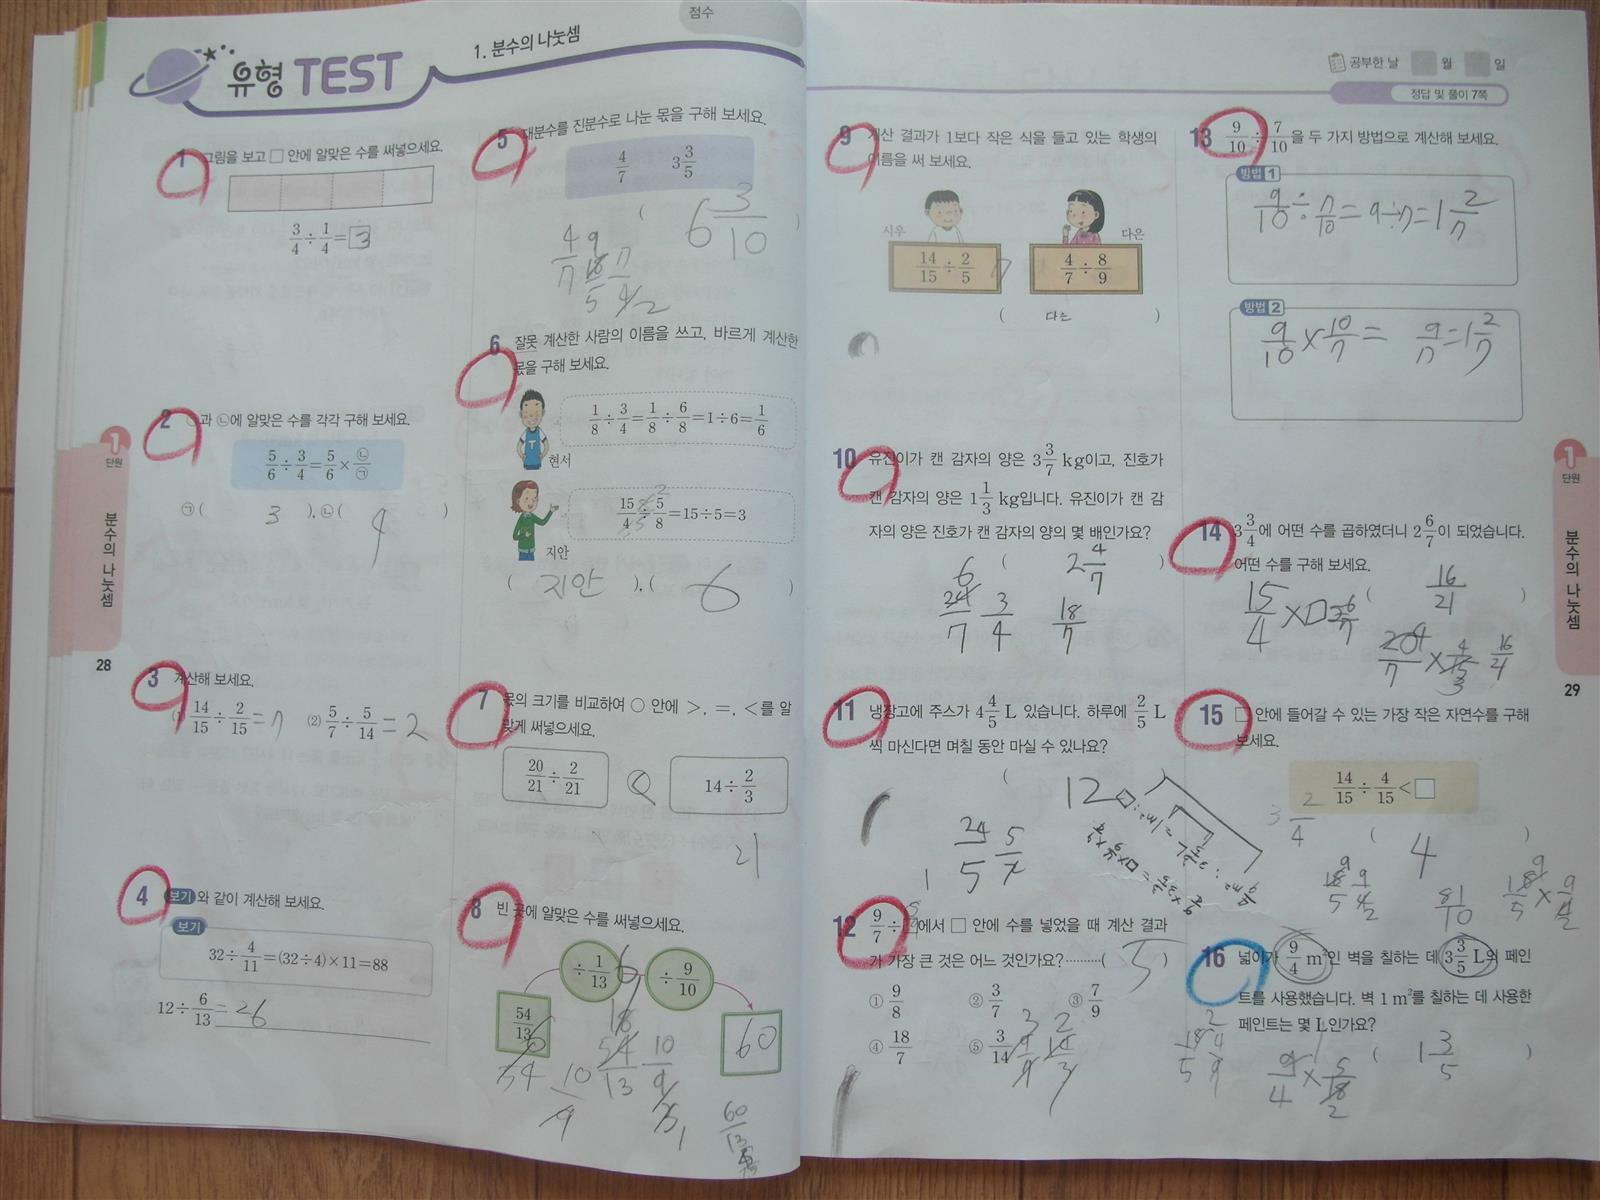 점수
유형 TEST
1. 분수의 나눗셈
1 그림을 보고 □ 안에 알맞은 수를 써넣으세요.
3/4 ÷ 1/4 = 3
2 ㉠과 ㉡에 알맞은 수를 각각 구해 보세요.
5/6 ÷ 3/4 = 5/6 × ㉡/㉠
㉠ ( 3 ), ㉡ ( 4 )
1
단원
분수의 나눗셈
28
3 계산해 보세요.
(1) 14/15 ÷ 2/15 = 7 (2) 5/7 ÷ 5/14 = 2
4 보기 와 같이 계산해 보세요.
보기
32 ÷ 4/11 = (32÷4)×11=88
12 ÷ 6/13 = 26
5 대분수를 진분수로 나눈 몫을 구해 보세요.
4/7 3 3/5
( 6 3/10 )
6 잘못 계산한 사람의 이름을 쓰고, 바르게 계산한
몫을 구해 보세요.
1/8 ÷ 3/4 = 1/8 ÷ 6/8 = 1÷6 = 1/6
현서
15/4 ÷ 5/8 = 15÷5=3
지안
( 지안 ), ( 6 )
7 몫의 크기를 비교하여 ○ 안에 >, =, <를 알
맞게 써넣으세요.
20/21 ÷ 2/21 < 14 ÷ 2/3
21
8 빈 곳에 알맞은 수를 써넣으세요.
÷ 1/13 ÷ 9/10
54/13 60
9 계산 결과가 1보다 작은 식을 들고 있는 학생의
이름을 써 보세요.
시우 다은
14/15 ÷ 2/5 4/7 ÷ 8/9
( 다은 )
10 유진이가 캔 감자의 양은 3 3/7 kg이고, 진호가
캔 감자의 양은 1 1/3 kg입니다. 유진이가 캔 감
자의 양은 진호가 캔 감자의 양의 몇 배인가요?
( 2 4/7 )
6
24/7 3/4 18/7
11 냉장고에 주스가 4 4/5 L 있습니다. 하루에 2/5 L
씩 마신다면 며칠 동안 마실 수 있나요?
( 12 )
12 9/7 ÷ □에서 □ 안에 수를 넣었을 때 계산 결과
가 가장 큰 것은 어느 것인가요? ········· ( 5 )
① 9/8 ② 3/7 ③ 7/9
④ 18/7 ⑤ 3/14
공부한 날 월 일
정답 및 풀이 7쪽
13 9/10 ÷ 7/10 을 두 가지 방법으로 계산해 보세요.
방법 1
9/10 ÷ 7/10 = 9÷7 = 1 2/7
방법 2
9/10 × 10/7 = 9/7 = 1 2/7
14 3 3/4에 어떤 수를 곱하였더니 2 6/7이 되었습니다.
어떤 수를 구해 보세요.
( 16/21 )
15 □ 안에 들어갈 수 있는 가장 작은 자연수를 구해
보세요.
14/15 ÷ 4/15 < □
3 2/4
( 4 )
16 넓이가 9/4 m²인 벽을 칠하는 데 3 3/5 L의 페인
트를 사용했습니다. 벽 1 m²를 칠하는 데 사용한
페인트는 몇 L인가요?
( 1 3/5 )
1
단원
분수의 나눗셈
29